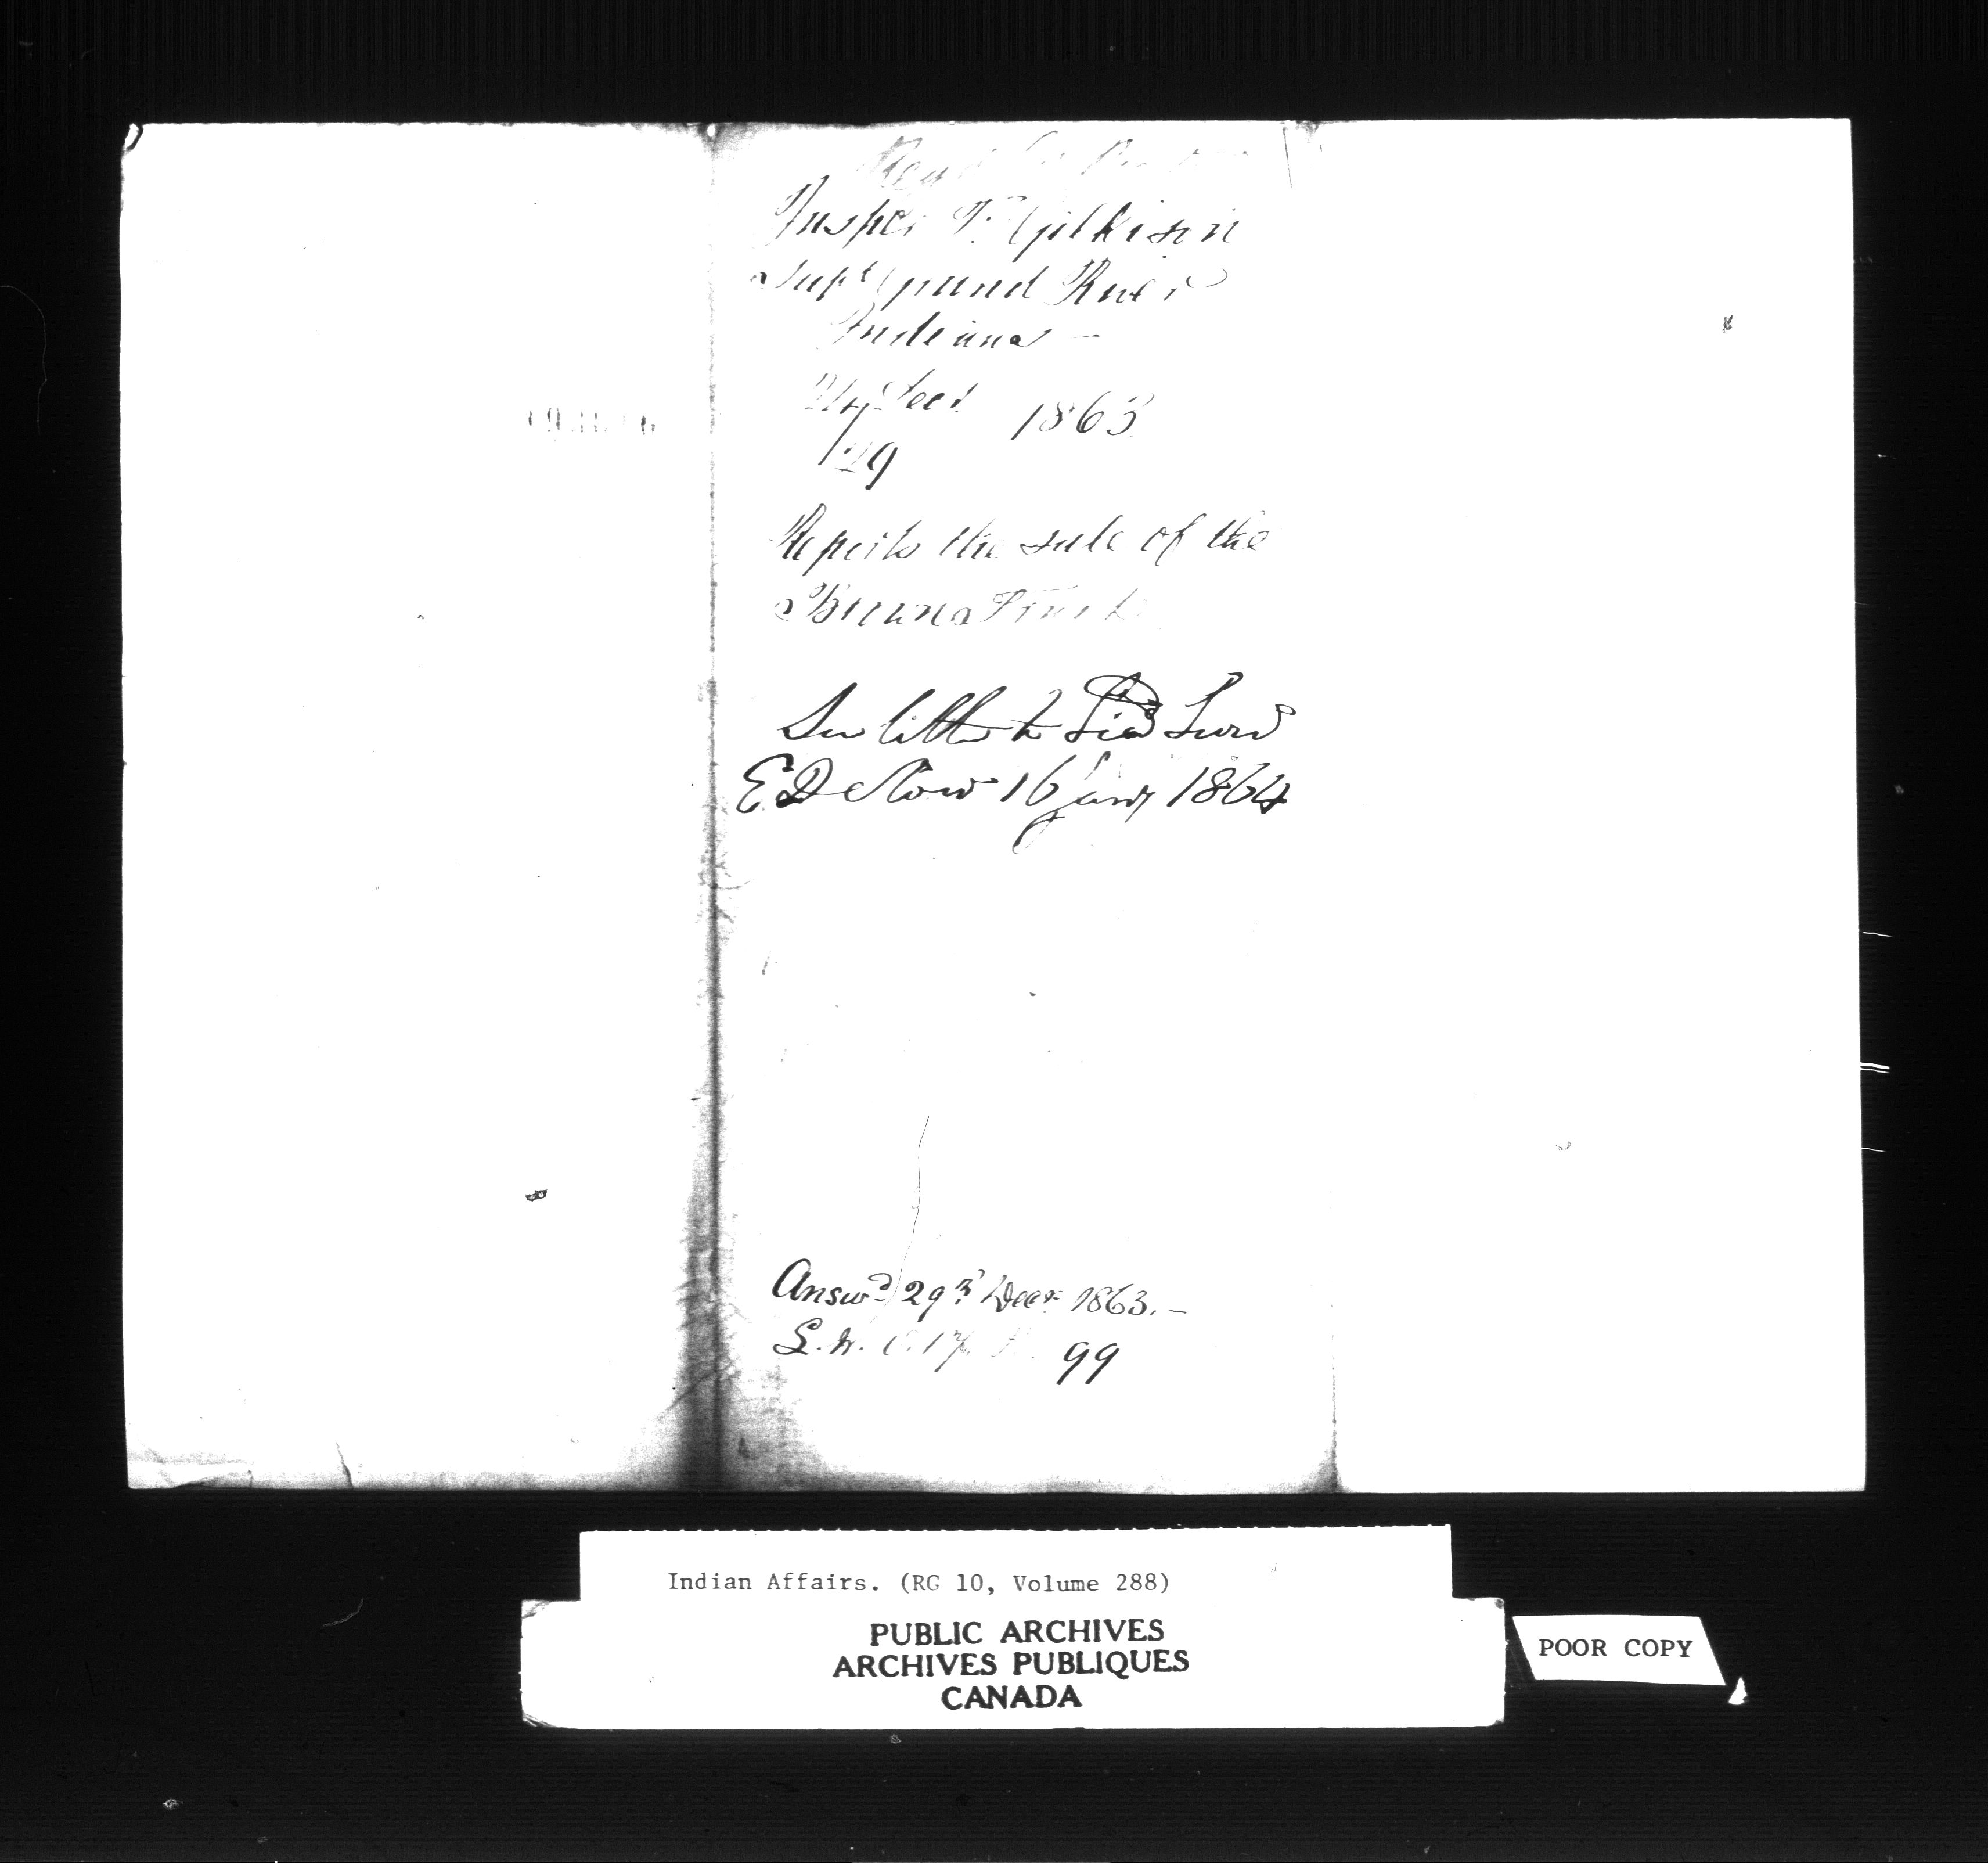 Jasper T. Gilkison
Supt Grand River
Indians -
24 Decr 1863
/29
Reports the sale of the
Burwa Tract
See letter to
E D 16 Jany 1864
Answd 29th Decr 1863. -
L. B. 99
Indian Affairs. (RG 10, Volume 288)
PUBLIC ARCHIVES
ARCHIVES PUBLIQUES
CANADA
POOR COPY